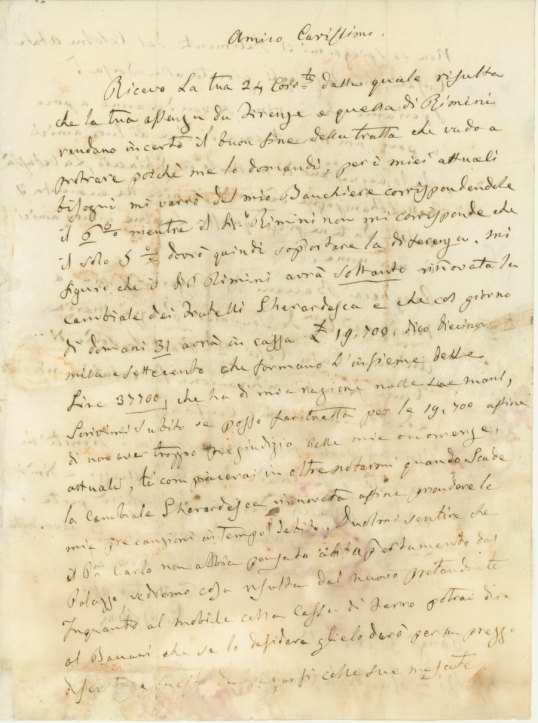 Amico Carissimo.
Ricevo la tua 24 Corr.te dalla quale risulta
che la tua assenza da Firenze e quella di Rimini
rendano incerto il buon fine della tratta che vado a
protrare poichè me lo domandi, per i miei attuali
bisogni mi varrò del mio Banchiere corrispondendole
il 6 % mentre il Rimini non mi corrisponde che
il solo 5 % dovrò quindi sopportare la diferenza. mi
figuro che il Rimini avrà soltanto rinnovata la
cambiale dei Fratelli Gherardesca e che col giorno
di domani 31 avrà in cassa £ 19,700. dico diecinove
mila e settecento che formano l'insieme delle
Lire 37700, che ha di mia ragione nelle sue mani,
Scrivimi subito se posso far tratta per le 19,700 affine
di non aver troppo pregiudizio nelle mie emergenze
attuali, ti compiacerai in oltre notarmi quando scade
la Cambiale Gherardesca rinnovata affine prendere le
mie precauzioni in tempo debito. Duolmi sentire che
il Carlo non abbia pensato appartamento del
Palazzo, vedremo cosa risulta dal nuovo pretendente
Inquanto al mobile Cassa di ferro potrai dire
al che se lo desidera glielo darò per un prezzo
da pagarsi colle sue